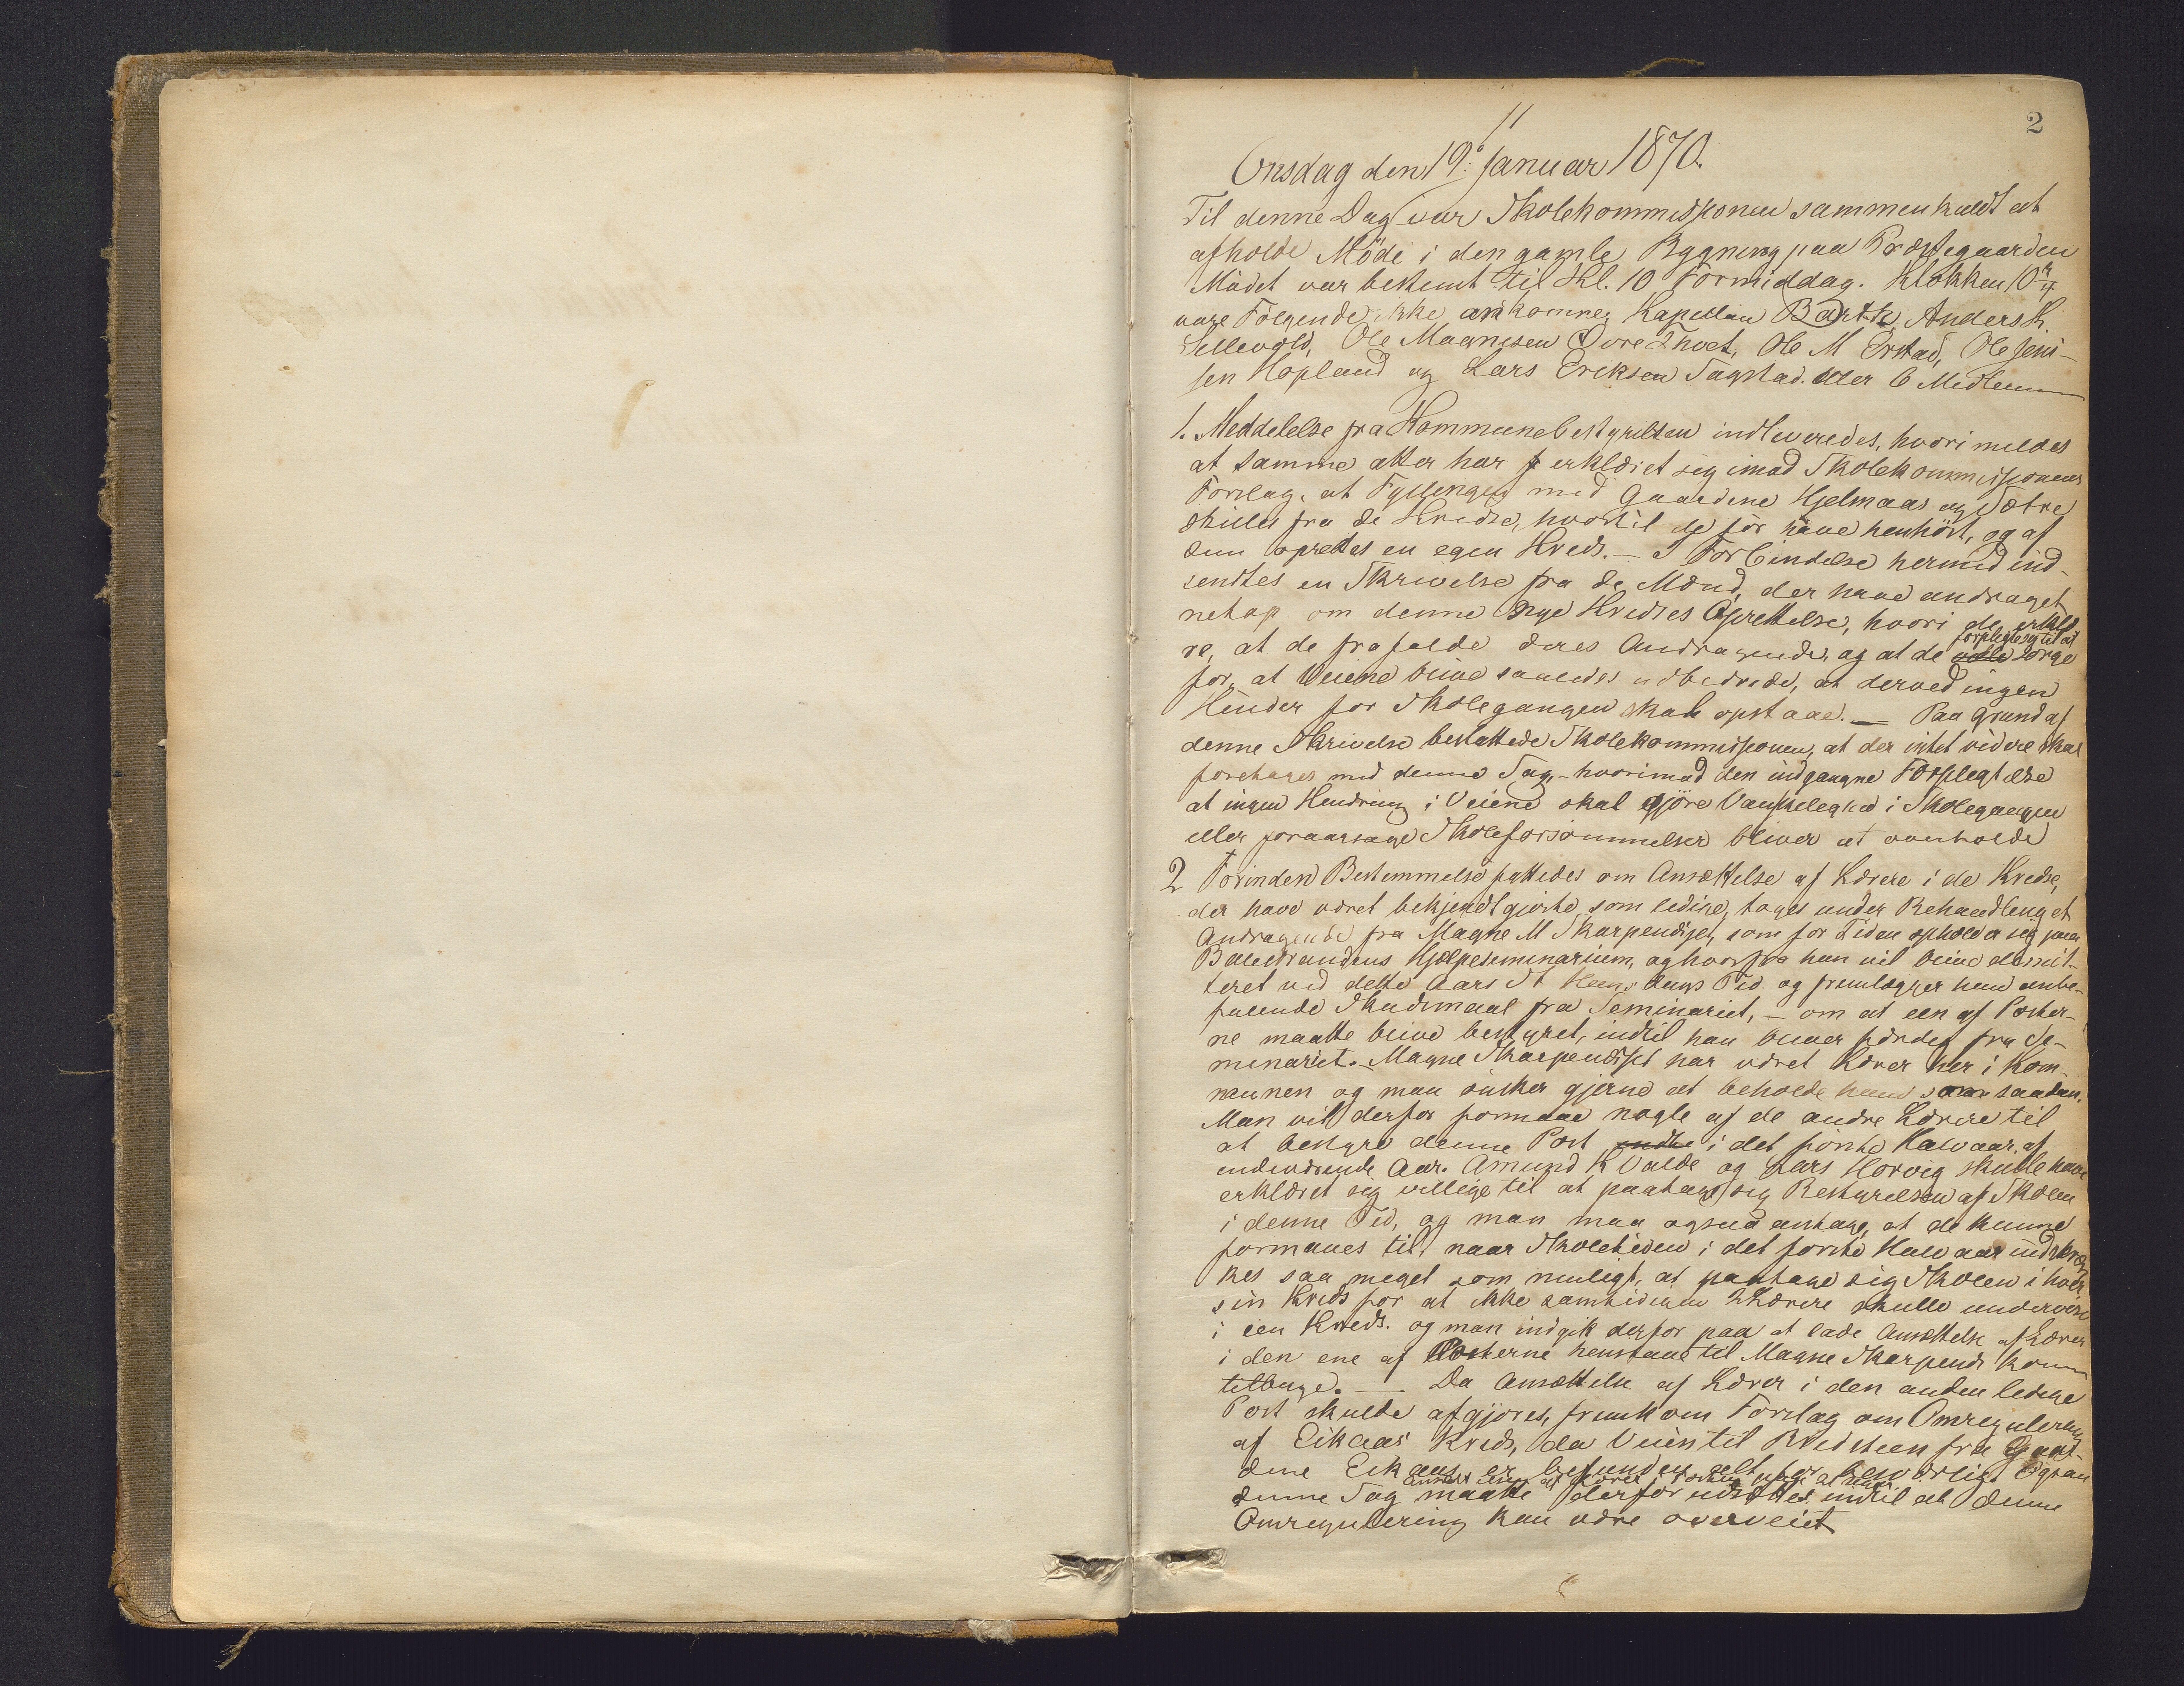 2
Onsdag den 19. Januar 1870.
Til denne Dag var Skolekommissionen sammenkaldt at
afholde Möde i den gamle Bygning paa Præstegaarden
Mödet var bestemt til Kl. 10 Formiddag. Klokken 10
vare Fölgende ikke ankomne, Kapellan Barth, Anders K.
Sellevold, Ole Magnesen Övre Tvet, Ole M Erstad, Ole Jen-
sen Hopland og Lars Eriksen Tagstad. eller 6 Medlemmer
1. Meddelelse fra Kommunebestyrelsen indleveredes, hvori meldes
at samme atter har erklæret sig imod Skolekommissionens
Forslag, at Fyllingen med Gaardene Hjelmaas og Sætre
skilles fra de Kredse, hvortil de för have henhört, og af
dem oprettes en egen Kreds. – I Forbindelse hermed ind-
sendtes en Skrivelse fra de Mænd, der have andraget
netop om denne nye Kredses Oprettelse, hvori de erklæ-
re, at de frafalde deres Andragende, og at de forpligte sig til at sörge
for, at Veiene blive saaledes udbedrede, at derved ingen
Hinder for Skolegangen skal opstaae. – Paa Grund af
denne Skrivelse besluttede Skolekommissionen, at der intet videre skal
foretages med denne Sag, – hvorimod den indgangne Forpligtelse
at ingen Hindring i Veiene skal gjöre Vanskelighed i Skolegangen
eller foraarsage Skoleforsömmelser bliver at overholde
2 Förinden Bestemmelse fattedes om Ansættelse af Lærere i de Kredse,
der have været bekjendtgjorte som ledige, toges under Behandling et
Andragende fra Magne M Skarpendiset, som for Tiden opholder sig paa
Balestrandens Hjælpeseminarium, og hvorfra han vil blive dimit-
teret ved dette Aars St Hans dags Tid. og fremlægger han anbe-
falende Skudsmaal fra Seminariet, – om at een af Poster-
ne maatte blive bestyret, indtil han bliver færdig fra Se-
minariet. – Magne Skarpendiset har været Lærer her i Kom-
munen og man önsker gjerne at beholde ham som saadan.
Man vil derfor formaae nogle af de andre Lærere til
at bestyre denne Post i det förste Halvaar. af
indeværende Aar. Amund K Valde og Lars Horvig skulle have
erklæret sig villige til at paatage sig Bestyrelsen af Skolen
i denne Tid, og man maa ogsaa antage, at de kunne
formaaes til, naar Skoletiden i det förste Halvaar indskræn
kes saa meget som muligt, at paatage sig Skolen i hver
sin Kreds for at ikke samtidigen 2 Lærere skulle undervise
i een Kreds. og man indgik derfor paa at lade Ansættelse af Lærer
i den ene af Posterne henstaae til Magne Skarpends kom
tilbage. – Da Ansættelse af Lærer i den anden ledige
Post skulde afgjöres, fremkom Forslag om Omregulering
af Eikaas Kreds, da Veien til Bredsteen fra Gaar-
dene Eikaas er befunden alt for besværligt
denne Sag maatte derfor udsættes indtil at denne
Omregulering kan være overveiet